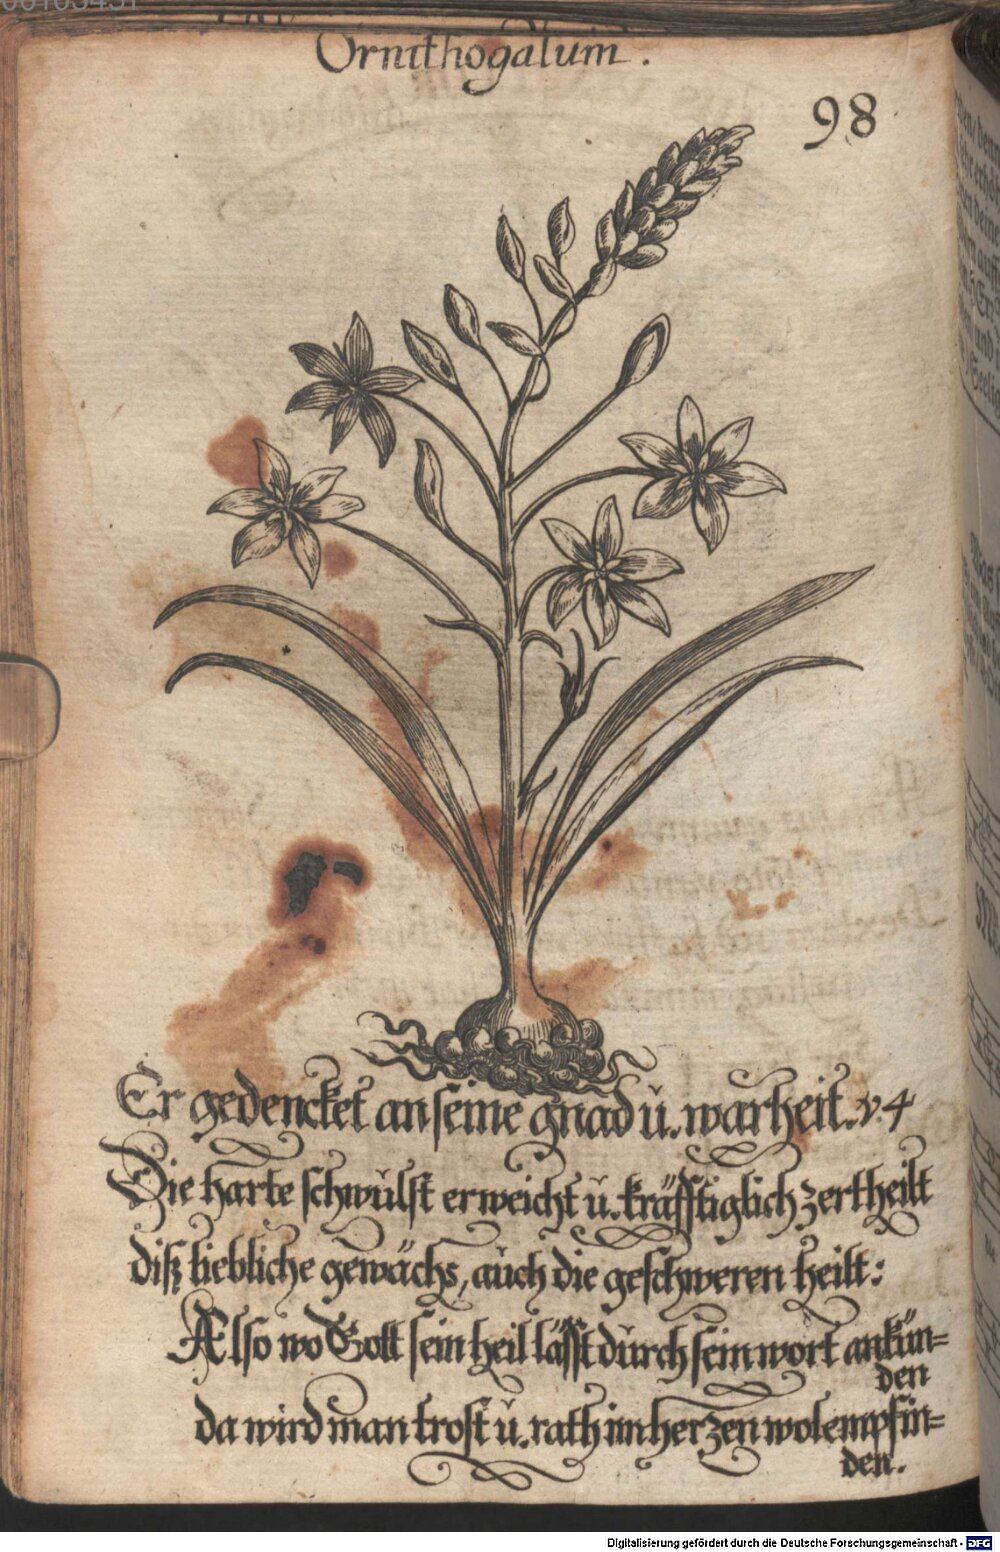 Ornithogalum.
98
Er gedencket an seine gnad ŭ. warheit. v. 4
Die harte schwŭlst erweicht ŭ. kräfftiglich zertheilt
diß liebliche gewächs, aŭch die geschweren heilt:
Also wo Gott sein heil läßt dŭrch sein wort ankün=
den
da wird man trost ŭ. rath im herzen wol empfin=
den.
Digitalisierung gefördert durch die Deutsche Forschungsgemeinschaft - DFG